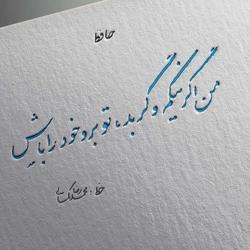 حافظ
من اگر نیکم و گر بد، تو برو خود را باش
خط: